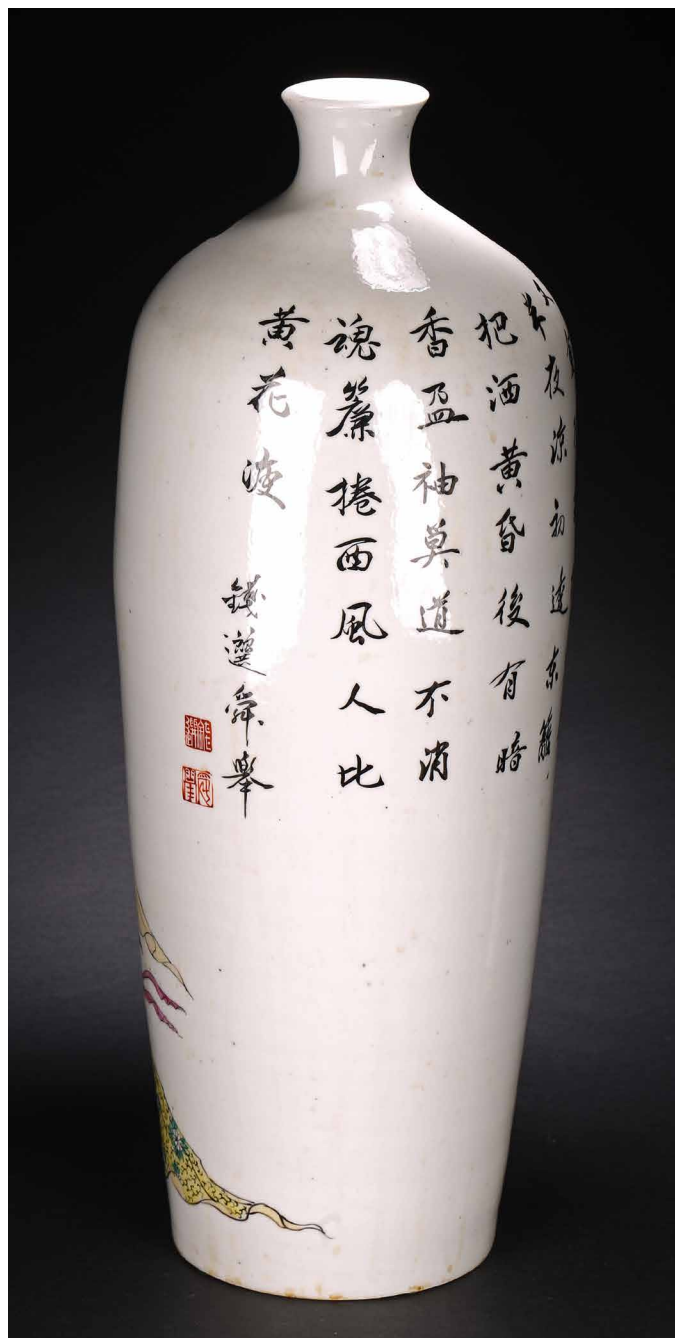 半夜涼初透东籬
把酒黄昏後有暗
香盈袖莫道不消
魂簾捲西風人比
黄花瘦
錢選舜舉